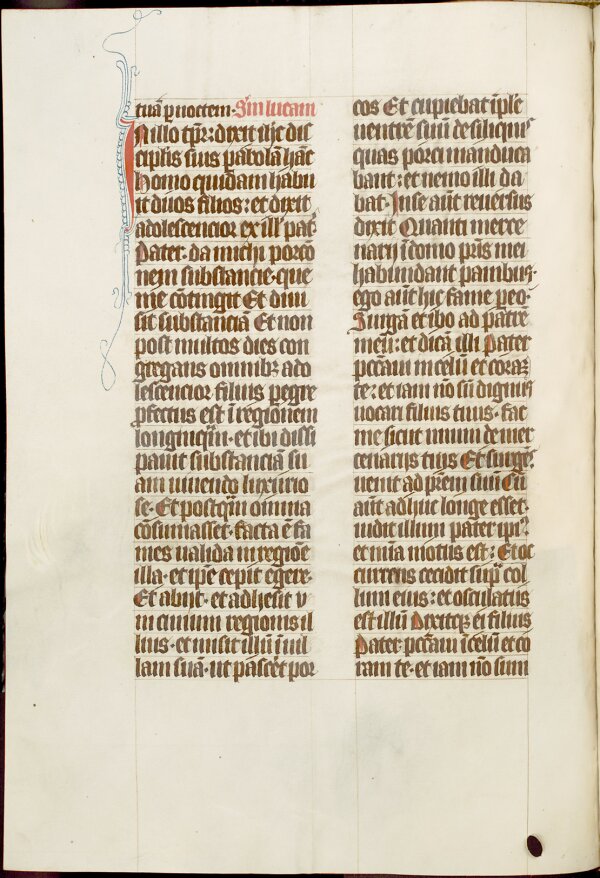 tuā ꝑ noctem· Sm̄ lucam
In illo tp̄r: dixit ih̄c dis
cipl̄is suis ꝑabolā hāc
Homo quidam habu
it duos filios: et dixit
adolescencior ex ill̄ pat̄
Pater· da michi porcō
nem substancie· que
me cōtingit Et diui
sit substanciā Et non
post multos dies con
gregans omnibꝫ ado
lescencior filius ꝑegre
ꝓfectus est ī regionem
longinquā· et ibi dissi
pauit substanciā su
am uiuendo luxurio
se· Et postq̄m omnia
cōsumasset· facta ē fa
mes ualida in regiōe
illa· et ip̄e cepit egere·
Et abijt· et adhesit v
ni ciuium regionis il
lius· et misit illū ī uil
lam suā· ut pascēt por
cos Et cupiebat īple
uentrē suū de siliquis
quas porci manduca
bant: et nemo illi da
bat· Inse aūt reuersus
dixit Quanti merce
narij ī domo pr̄is mei
habundant panibus·
ego aūt hic fame ꝑeo·
Surgā et ibo ad patrē
meū: et dicā illi Pater
pccāui in celū et corā
te: et iam nō sū dignus
uocari filius tuus· fac
me sicut unum de mer
cenarijs tuis Et surgēs
uenit ad pr̄em suū Cū
aūt adhuc longe esset·
uidit illum pater ipī
et mīa motus est: Et oc
currens cecidit sup̄ col
lum eius: et osculatus
est illū Dixitqꝫ ei filius
Pater pccāui ī celū et co
ram te· et iam nō sum